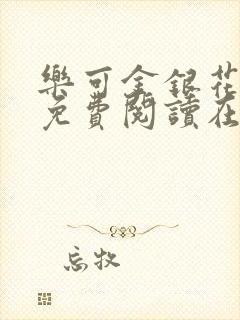 樂可金銀花
免費閱讀在
忘牧